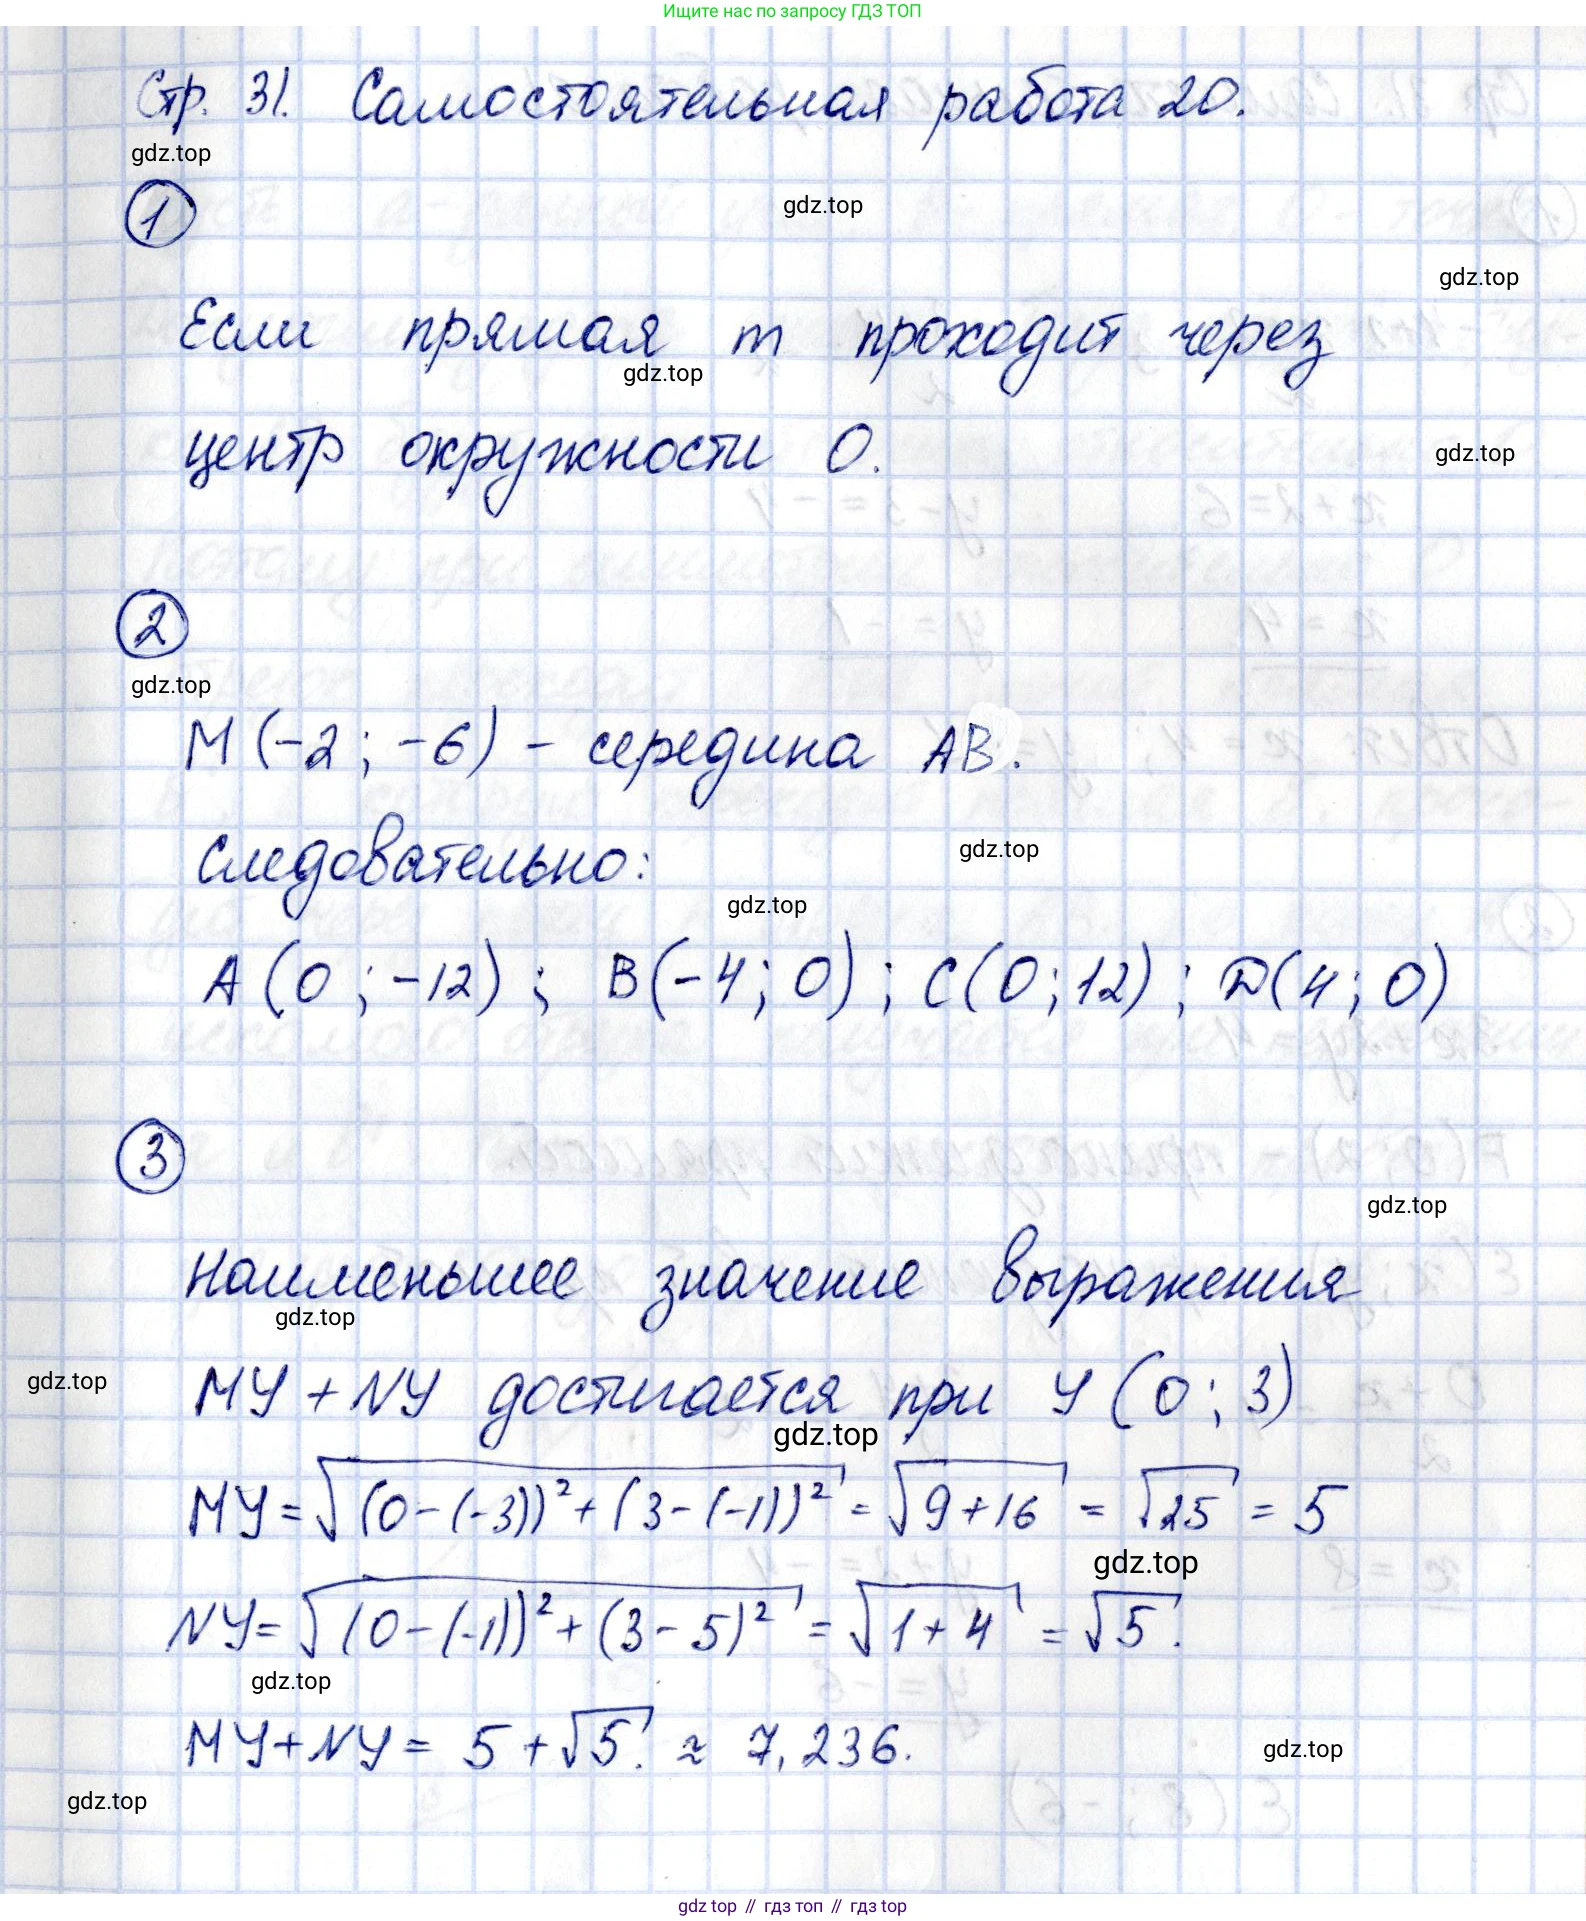 Ищите нас по запросу ГДЗ ТОП
Стр. 31. Самостоятельная работа 20.
gdz.top
1
gdz.top
gdz.top
Если прямая m проходит через
gdz.top
центр окружности O.
gdz.top
2
gdz.top
M(-2; -6) - середина AB.
следовательно:
gdz.top
gdz.top
A(0; -12); B(-4; 0); C(0; 12); D(4; 0)
3
gdz.top
Наименьшее значение выражения
gdz.top
gdz.top
MY + NY достигается при Y(0; 3)
gdz.top
MY = √((0-(-3))² + (3-(-1))²) = √(9+16) = √25 = 5
gdz.top
NY = √((0-(-1))² + (3-5)²) = √(1+4) = √5.
gdz.top
MY + NY = 5 + √5. ≈ 7,236.
gdz.top
gdz.top
gdz top // гдз топ // гдз top